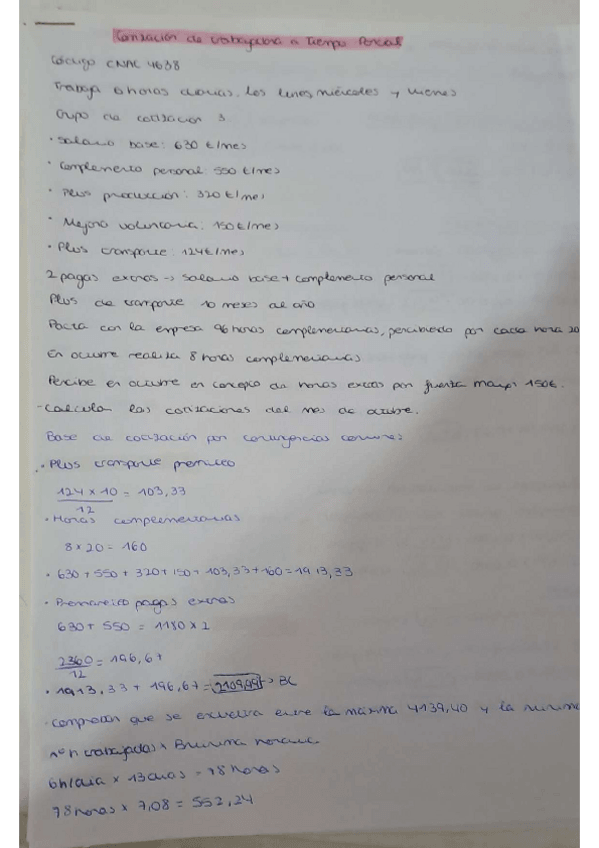 Cotización de trabajadora a Tiempo Parcial
Código CNAE 4638
Trabaja 6 horas diarias, los lunes, miércoles y viernes
Grupo de cotización 3.
· Salario base: 630 €/mes
· Complemento personal: 550 €/mes
· Plus producción: 320 €/mes
· Mejora voluntaria: 150 €/mes
· Plus transporte: 124 €/mes
2 pagas extras → salario base + complemento personal
Plus de transporte 10 meses al año
Pacta con la empresa 96 horas complementarias, percibiendo por cada hora 20
En octubre realiza 8 horas complementarias
Percibe en octubre en concepto de horas extras por fuerza mayor 150€.
- Calcular las cotizaciones del mes de octubre.
Base de cotización por contingencias comunes:
· Plus transporte prorrateo
124 x 10 = 103,33
12
· Horas complementarias
8 x 20 = 160
· 630 + 550 + 320 + 150 + 103,33 + 160 = 1913,33
· Prorrateo pagas extras
630 + 550 = 1180 x 2
2360 = 196,67
12
· 1913,33 + 196,67 = 2109,99 → BC
· Comprobar que se encuentra entre la máxima 4139,40 y la mínima
nº h trabajadas x B mínima horaria
6h/día x 13 días = 78 horas
78 horas x 7,08 = 552,24